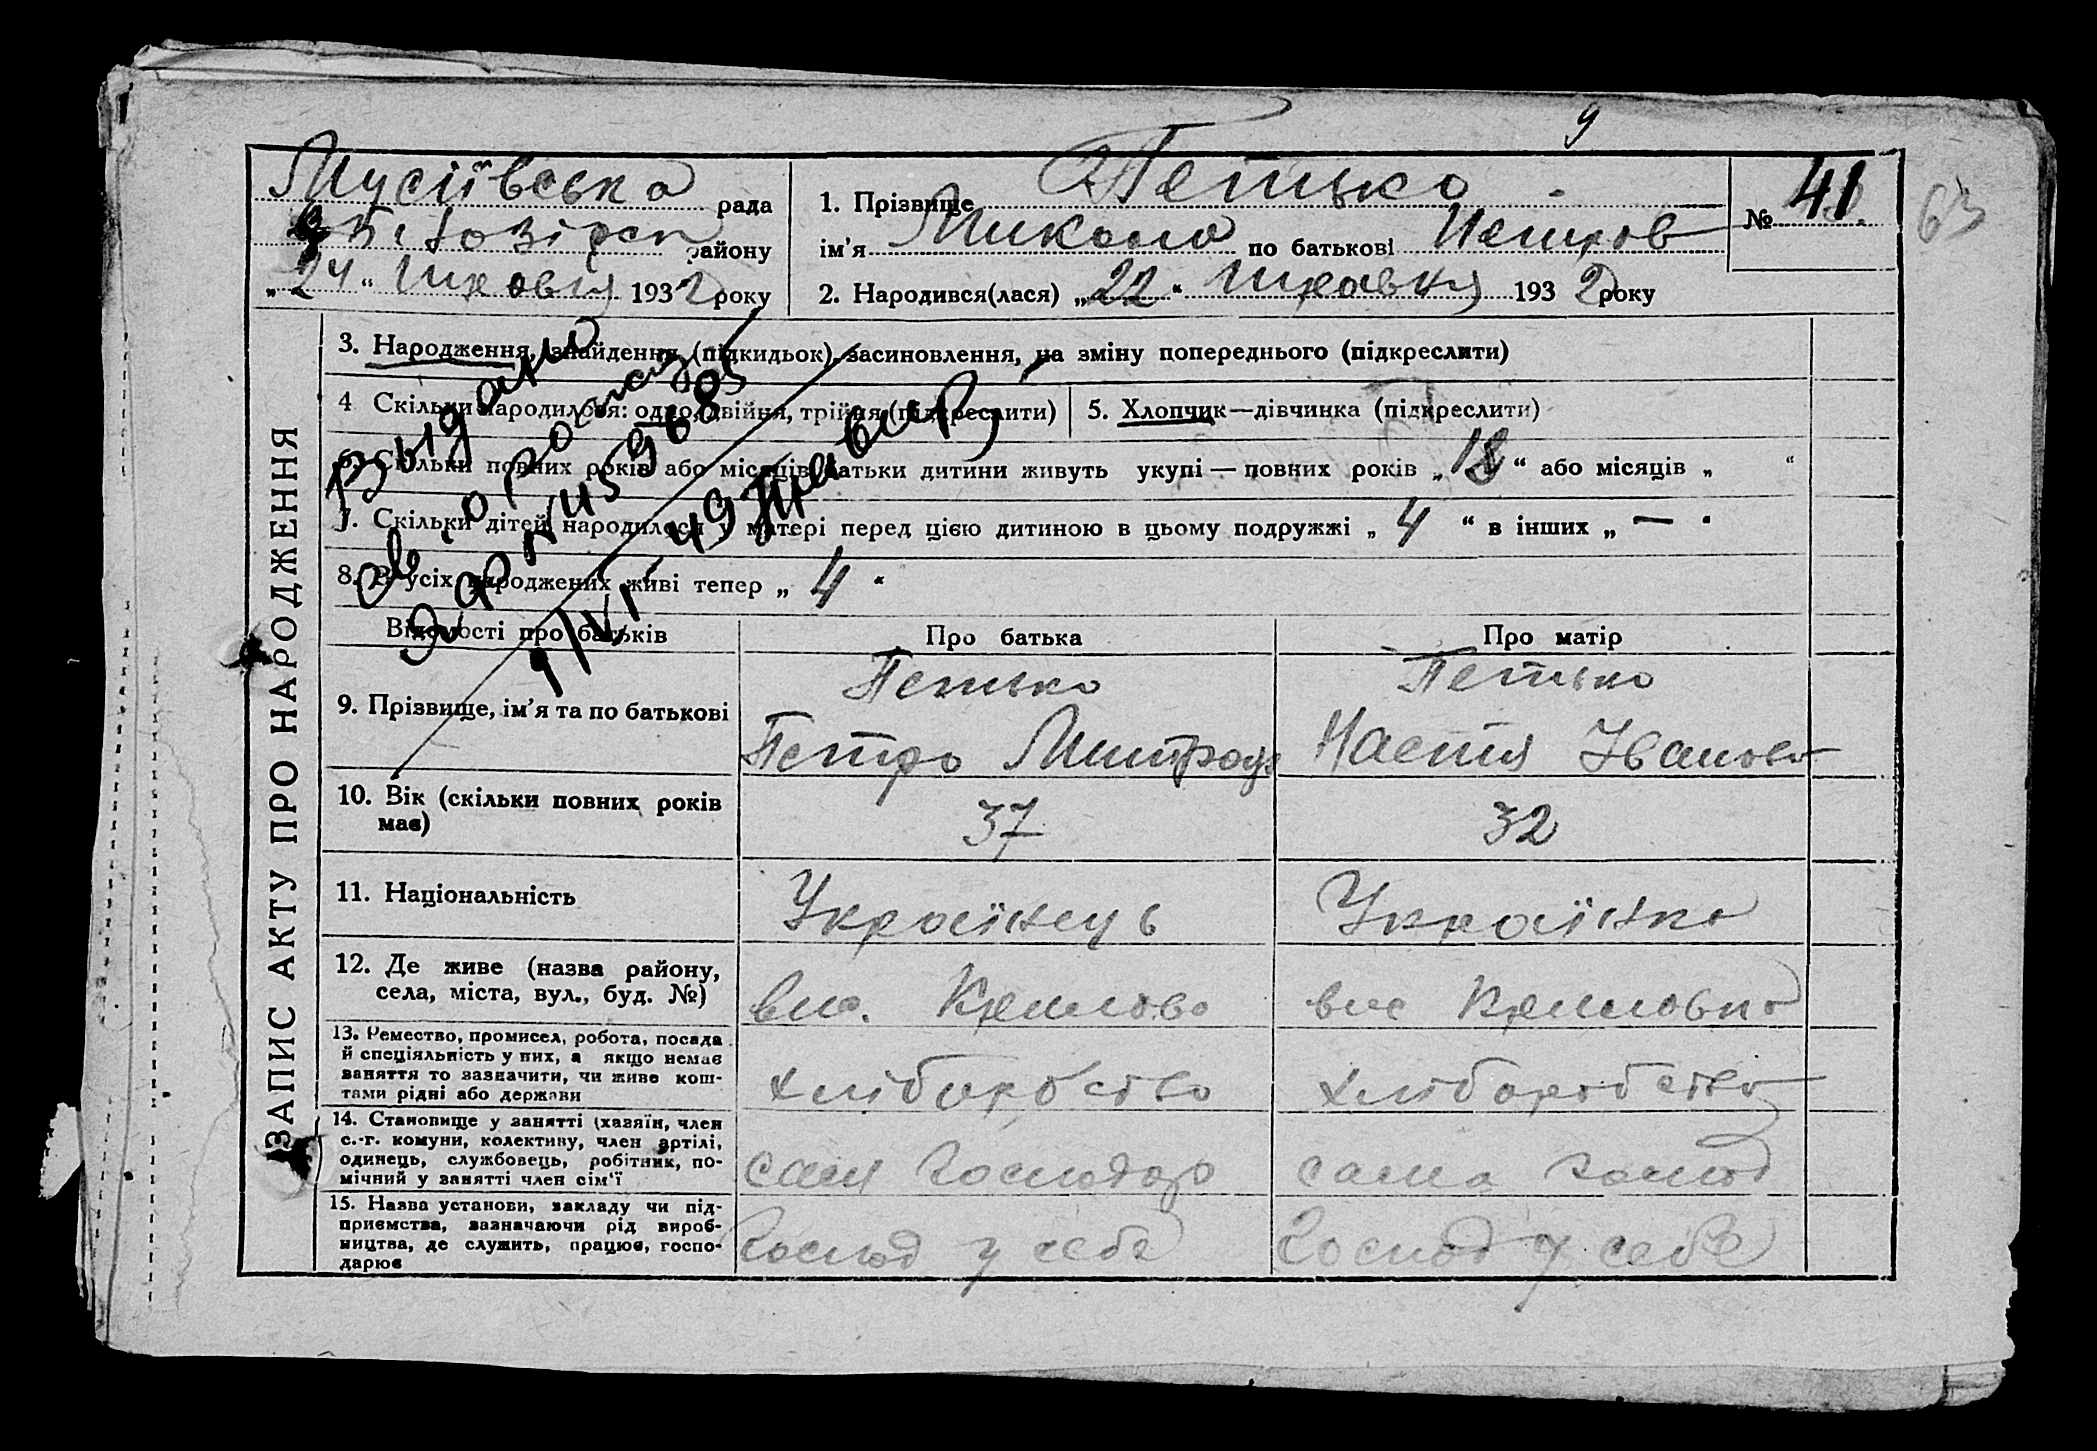 9
Мусіївська рада
району
„24“ травня 1932 року
1. Прізвище Петько
ім’я Микола по батькові Петров
2. Народився(лася) „22“ травня 1932 року
№ 41
63
ЗАПИС АКТУ ПРО НАРОДЖЕННЯ
3. Народження, знайдення (підкидьок), засиновлення, на зміну попереднього (підкреслити)
4 Скільки народилося: одно, двійня, трійня (підкреслити)
5. Хлопчик—дівчинка (підкреслити)
6. Скільки повних років або місяців батьки дитини живуть укупі — повних років „12“ або місяців „ “
7. Скільки дітей народилося у матері перед цією дитиною в цьому подружжі „4“ в інших „—“
8. З усіх народжених живі тепер „4“
Выдано
св. о
49
Відомості про батьків
Про батька
Про матір
9. Прізвище, ім’я та по батькові
Петько
Петро
Петько
Настя Іванов
10. Вік (скільки повних років має)
37
32
11. Національність
Українець
Українка
12. Де живе (назва району,
села, міста, вул., буд. №)
13. Ремество, промисел, робота, посада
й спеціяльність у них, а якщо немає
заняття то зазначити, чи живе кош-
тами рідні або держави
хліборобство
хліборобство
14. Становище у занятті (хазяїн, член
с.-г. комуни, колективу, член артілі,
одинець, службовець, робітник, по-
мічний у занятті член сім’ї
сам господар
сама господ
15. Назва установи, закладу чи під-
приємства, зазначаючи рід вироб-
ництва, де служить, працює, госпо-
дарює
Господ у себе
Господ у себе